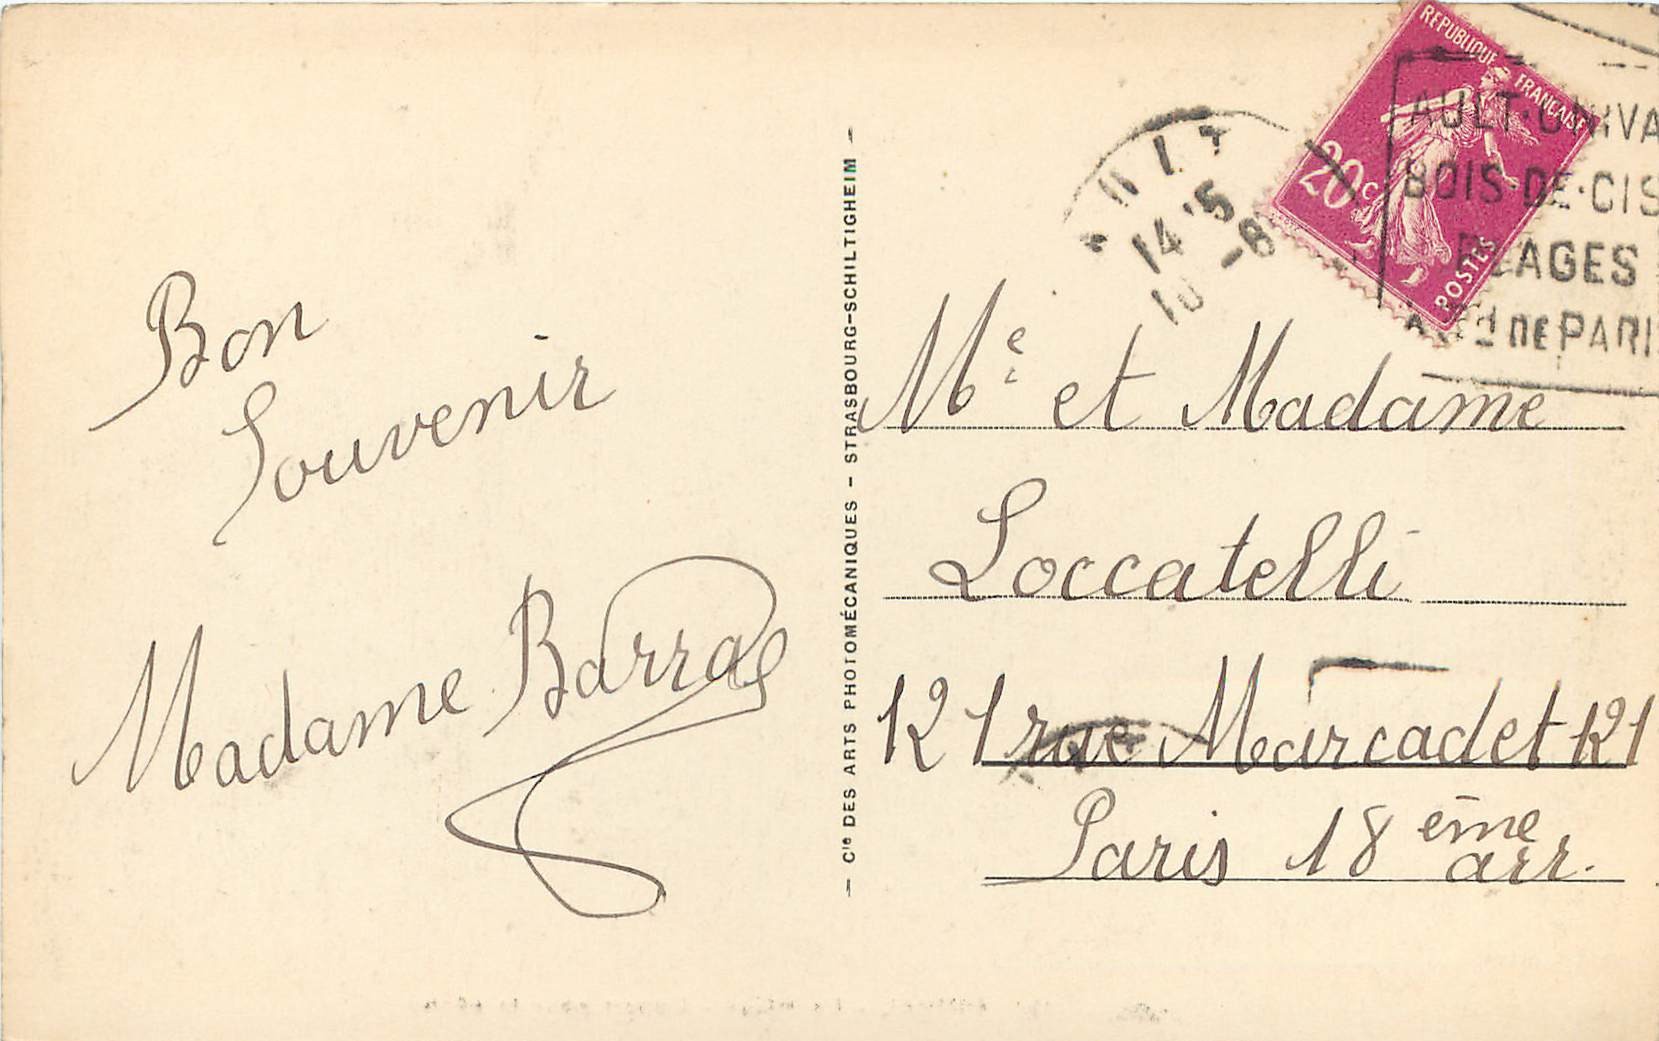 Bon
Souvenir
Madame Barras
— Cie DES ARTS PHOTOMÉCANIQUES – STRASBOURG–SCHILTIGHEIM —
REPUBLIQUE FRANÇAISE
20c
POSTES
AULT
14 15
-8
AULT·ONIVA
BOIS·DE·CIS
PLAGES
DE PARI
Me et Madame
Loccatelli
121 rue Marcadet 121
Paris 18 ème
arr.